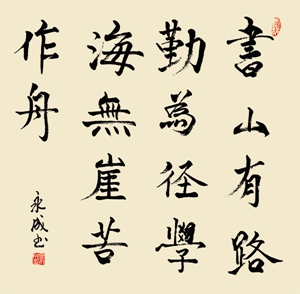 書山有路
勤為径學
海無崖苦
作舟
永成书